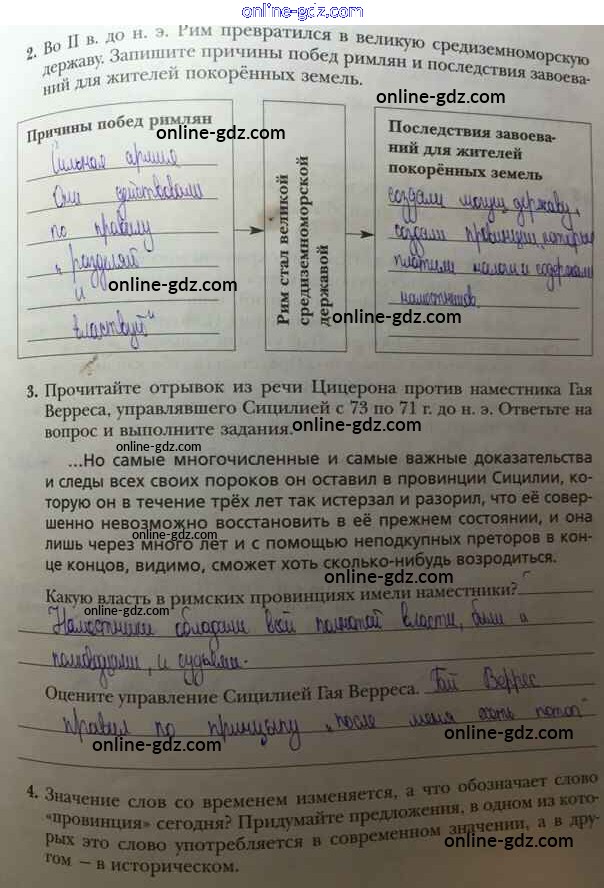 online-gdz.com
2. Во II в. до н. э. Рим превратился в великую средиземноморскую
державу. Запишите причины побед римлян и последствия завоева-
ний для жителей покорённых земель.
online-gdz.com
Причины побед римлян
online-gdz.com
Сильная армия
Они действовали
по правилу
„разделяй
и
властвуй"
online-gdz.com
Рим стал великой
средиземноморской
державой
Последствия завоева-
ний для жителей
покорённых земель
создали могущ державу,
создали провинции, которые
платили налоги и содержали
наместников.
online-gdz.com
3. Прочитайте отрывок из речи Цицерона против наместника Гая
Верреса, управлявшего Сицилией с 73 по 71 г. до н. э. Ответьте на
вопрос и выполните задания.
online-gdz.com
online-gdz.com
...Но самые многочисленные и самые важные доказательства
и следы всех своих пороков он оставил в провинции Сицилии, ко-
торую он в течение трёх лет так истерзал и разорил, что её совер-
шенно невозможно восстановить в её прежнем состоянии, и она
лишь через много лет и с помощью неподкупных преторов в кон-
це концов, видимо, сможет хоть сколько-нибудь возродиться.
online-gdz.com
online-gdz.com
Какую власть в римских провинциях имели наместники?
online-gdz.com
Наместники обладали всей полнотой власти, были и
полководцами, и судьями.
Оцените управление Сицилией Гая Верреса. Гай Веррес
правил по принципу „после меня хоть потоп"
online-gdz.com
online-gdz.com
4. Значение слов со временем изменяется, а что обозначает слово
«провинция» сегодня? Придумайте предложения, в одном из кото-
рых это слово употребляется в современном значении, а в дру-
гом — в историческом.
online-gdz.com
online-gdz.com